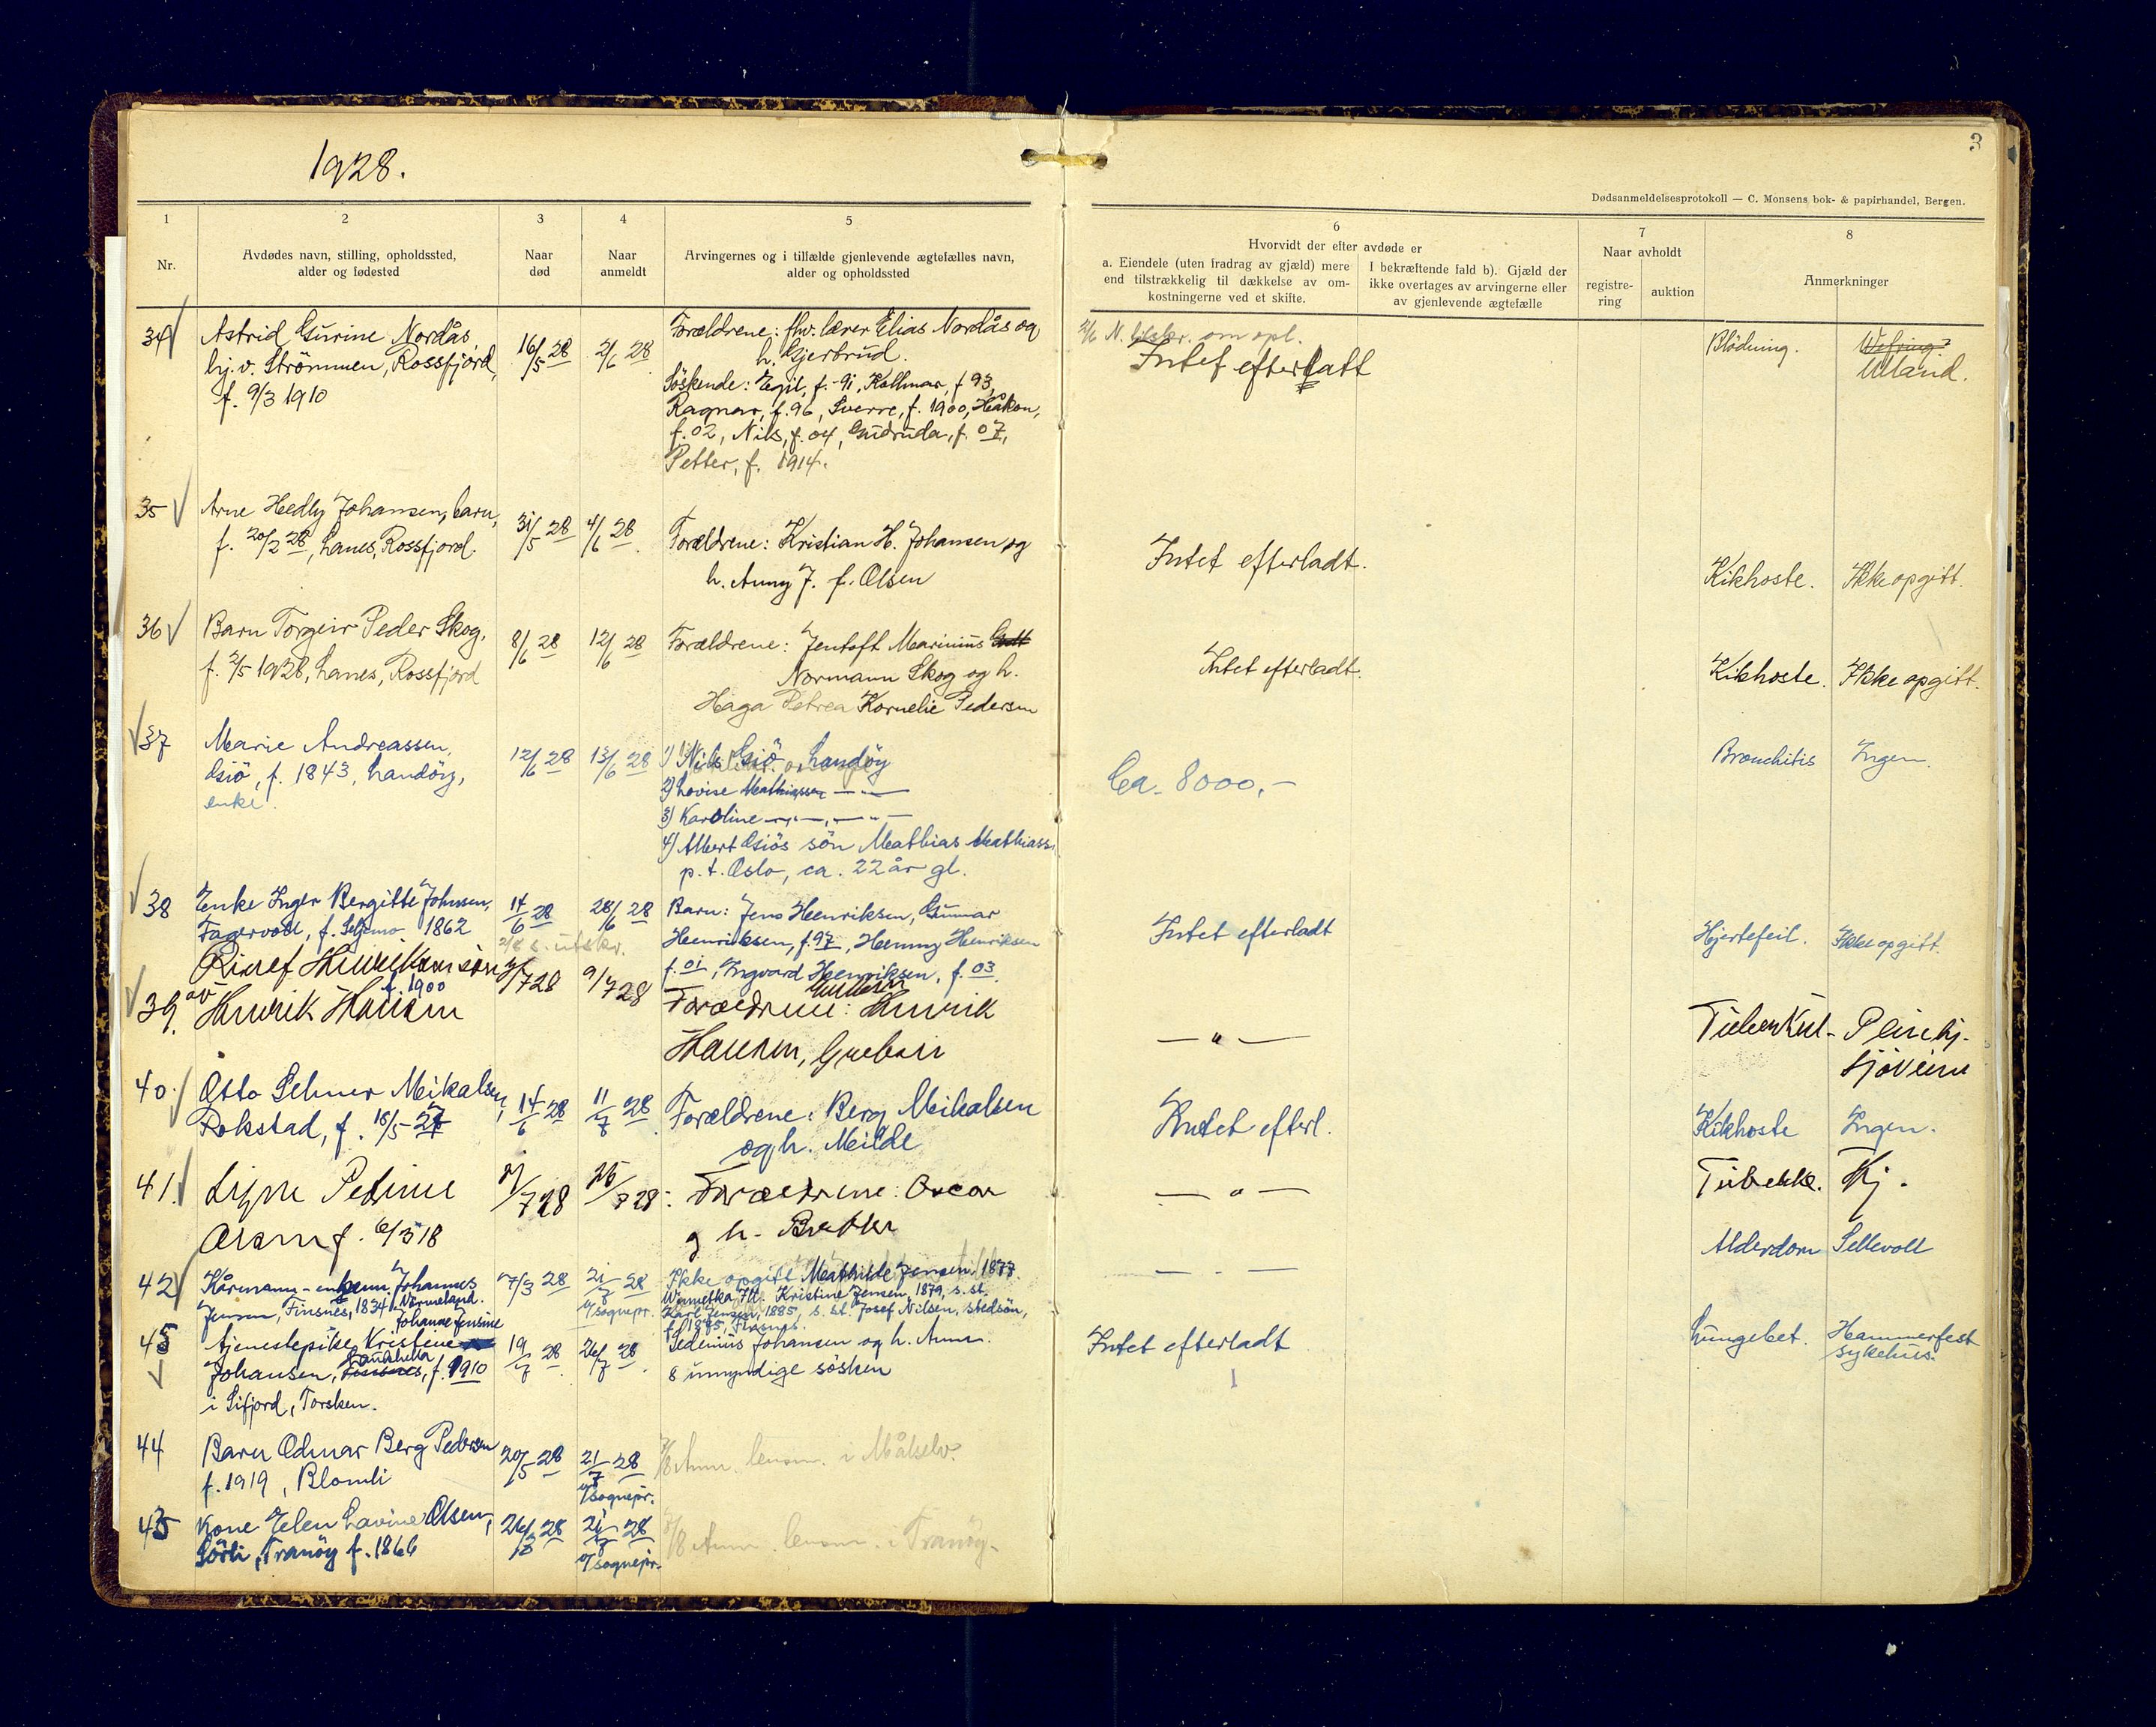 1928.
3
Dødsanmeldelsesprotokoll — C. Monsens bok- & papirhandel, Bergen.
1
2
3
4
5
6
7
8
Nr.
Avdødes navn, stilling, opholdssted,
alder og fødested
Naar
død
Naar
anmeldt
Arvingernes og i tilfælde gjenlevende ægtefælles navn,
alder og opholdssted
Hvorvidt der efter avdøde er
a. Eiendele (uten fradrag av gjæld) mere
end tilstrækkelig til dækkelse av om-
kostningerne ved et skifte.
I bekræftende fald b). Gjæld der
ikke overtages av arvingerne eller
av gjenlevende ægtefælle
Naar avholdt
registre-
ring
auktion
Anmerkninger
34
Astrid Gurine Nordås,
hj. v. Strömmen, Rossfjord,
f. 9/3 1910
16/5 28
2/6 28
Forældrene: fhv. lærer Elias Nordås og
h. Gjertrud.
Söskende: Egil, f. 91, Kollmar, f 93,
Ragnar, f. 96, Sverre, f. 1900, Håkon,
f. 02, Nils, f. 04, Gudruda, f. 07,
Petter, f. 1914.
2/6 N. tilskr. om opl.
Intet efterlatt
Blödning.
Utland.
35
Arne Hedly Johansen, barn,
f. 20/2 28, Lanes, Rossfjord.
31/5 28
4/6 28
Forældrene: Kristian H. Johansen og
h. Anny J. f. Olsen
Intet efterladt.
Kikhoste.
Ikke opgitt.
36
Barn Torgeir Peder Skog,
f. 2/5 1928, Lanes, Rossfjord
8/6 28
12/6 28
Forældrene: Jentoft Marinius
Normann Skog og h.
Haga Petrea Kornelie Pedersen
Intet efterladt.
Kikhoste.
Ikke opgitt.
37
Marie Andreassen,
Gsiö, f. 1843, Landöy,
enke.
12/6 28
13/6 28
1) Nils Gsiö, Landöy
2) Lovise Mathiassen — " —
3) Karoline — " —, — " —
4) Albert Gsiös sön Mathias Mathiass.
p.t. Oslo, ca. 22 år gl.
Ca. 8000,-
Bronchitis
Ingen.
38
Enke Inger Bergitte Johnsen,
Fagervoll, f. 1862
14/6 28
28/6 28
Barn: Jens Henriksen, Gunnar
Henriksen, f. 97, Henny Henriksen
f. 01, Ingvard Henriksen, f. 03.
Intet efterladt
Hjertefeil.
Ikke opgitt.
39.
Henriksen sön
av f. 1900
Henrik Hansen
/7 28
9/7 28
Forældrene: Henrik
Hansen,
— " —
Tuberkul-
Pleiehj.
Sjöveien
40.
Otto Selmer Mikalsen,
Rokstad, f. 18/5 27
14/6 28
11/7 28
Forældrene: Berg Mikalsen
og h. Milde
Intet efterl.
Kikhoste
Ingen.
41.
Signe Petrine
Olsen f. 6/3 18
/7 28
28
Forældrene: Oscar
g h.
— " —
Tuberkl.
Kj.
42
Kårmann - enkem. Johannes
Jensen, Finsnes, 1834
7/3 28
21/7 28
v/sognepr.
Ikke opgitt. Mathilde Jensen, 1877.
Kristine Jensen, 1879, s. st.
Karl Jensen, 1885, s. st. Josef Nilsen, stedsön,
f. 1875, Finsnes.
— . —
Alderdom
Sellevoll
43
Johanne Jensine
Tjenestepike Kristine
Johansen, f. 1910
i Sifjord, Torsken.
19/7 28
26/7 28
Pedenius Johansen og h. Anna.
8 umyndige sösken
Intet efterladt
Lungebet.
Hammerfest
sykehus.
44
Barn Odmar Berg Pedersen
f. 1919, Blomli
20/5 28
21/7 28
v/sognepr.
/8 Anm. lensm. i Målselv.
45
Kone Elen Lavine Olsen,
Sörli, Tranöy f. 1866
26/3 28
21/7 28
v/sognepr.
/8 Anm. lensm. i Tranöy.